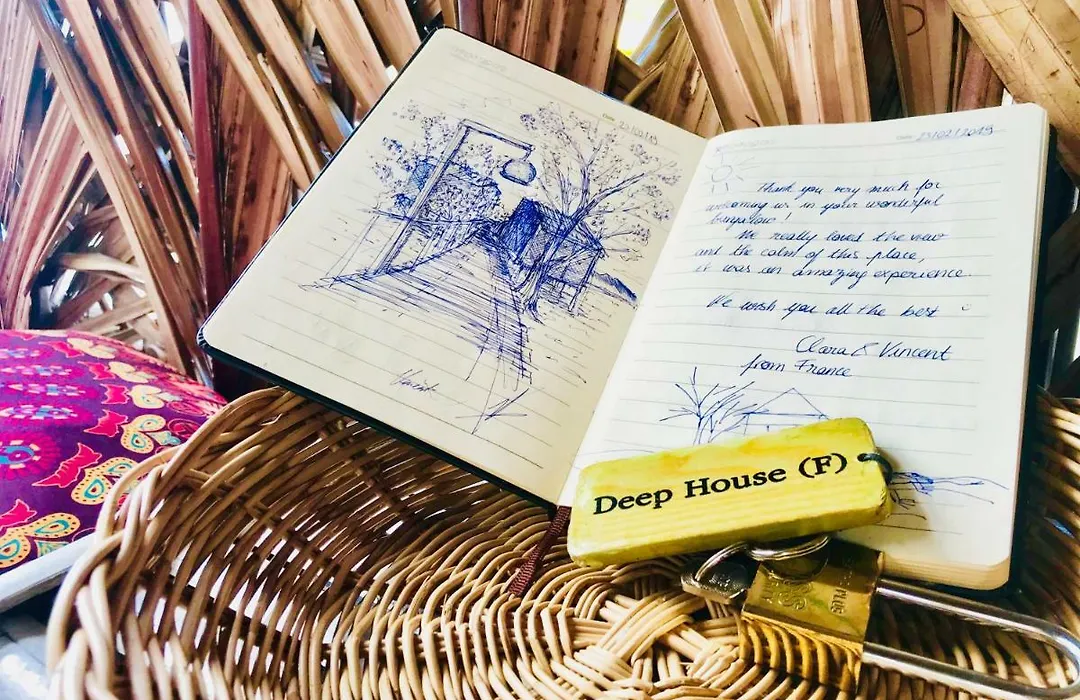 23/02/2019
Thank you very much for
welcoming us in your wonderful
bungalow!
We really loved the view
and the calm of this place,
it was an amazing experience.
We wish you all the best
Clara & Vincent
from France
Deep House (F)